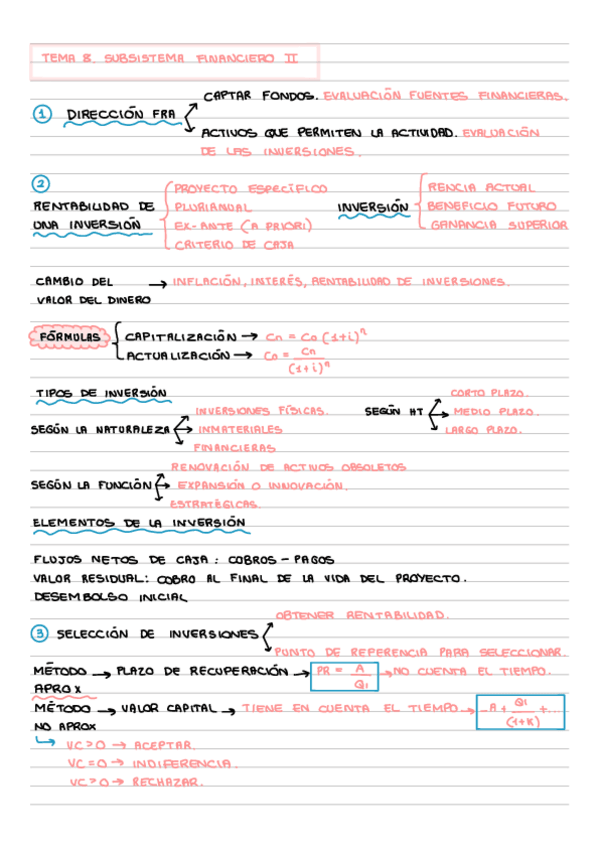 TEMA 8. SUBSISTEMA FINANCIERO II
CAPTAR FONDOS. EVALUACIÓN FUENTES FINANCIERAS.
1 DIRECCIÓN FRA
ACTIVOS QUE PERMITEN LA ACTIVIDAD. EVALUACIÓN
DE LAS INVERSIONES.
2
RENTABILIDAD DE
UNA INVERSIÓN
PROYECTO ESPECÍFICO
PLURIANUAL
EX-ANTE (A PRIORI)
CRITERIO DE CAJA
INVERSIÓN
RENCIA ACTUAL
BENEFICIO FUTURO
GANANCIA SUPERIOR
CAMBIO DEL → INFLACIÓN, INTERÉS, RENTABILIDAD DE INVERSIONES.
VALOR DEL DINERO
FÓRMULAS
CAPITALIZACIÓN → Cn = Co (1+i)^n
ACTUALIZACIÓN → Co = Cn / (1+i)^n
TIPOS DE INVERSIÓN
SEGÚN LA NATURALEZA
INVERSIONES FÍSICAS.
INMATERIALES
FINANCIERAS
SEGÚN HT
CORTO PLAZO.
MEDIO PLAZO.
LARGO PLAZO.
SEGÚN LA FUNCIÓN
RENOVACIÓN DE ACTIVOS OBSOLETOS
EXPANSIÓN O INNOVACIÓN.
ESTRATÉGICAS.
ELEMENTOS DE LA INVERSIÓN
FLUJOS NETOS DE CAJA: COBROS - PAGOS
VALOR RESIDUAL: COBRO AL FINAL DE LA VIDA DEL PROYECTO.
DESEMBOLSO INICIAL
OBTENER RENTABILIDAD.
3 SELECCIÓN DE INVERSIONES
PUNTO DE REFERENCIA PARA SELECCIONAR.
MÉTODO → PLAZO DE RECUPERACIÓN → PR = A / Q1 → NO CUENTA EL TIEMPO.
APROX
MÉTODO → VALOR CAPITAL → TIENE EN CUENTA EL TIEMPO → -A + Q1 / (1+K) + ...
NO APROX
VC > 0 → ACEPTAR.
VC = 0 → INDIFERENCIA.
VC > 0 → RECHAZAR.